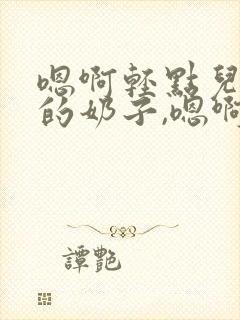 嗯啊轻點兒
的奶子,嗯啊
譚艷